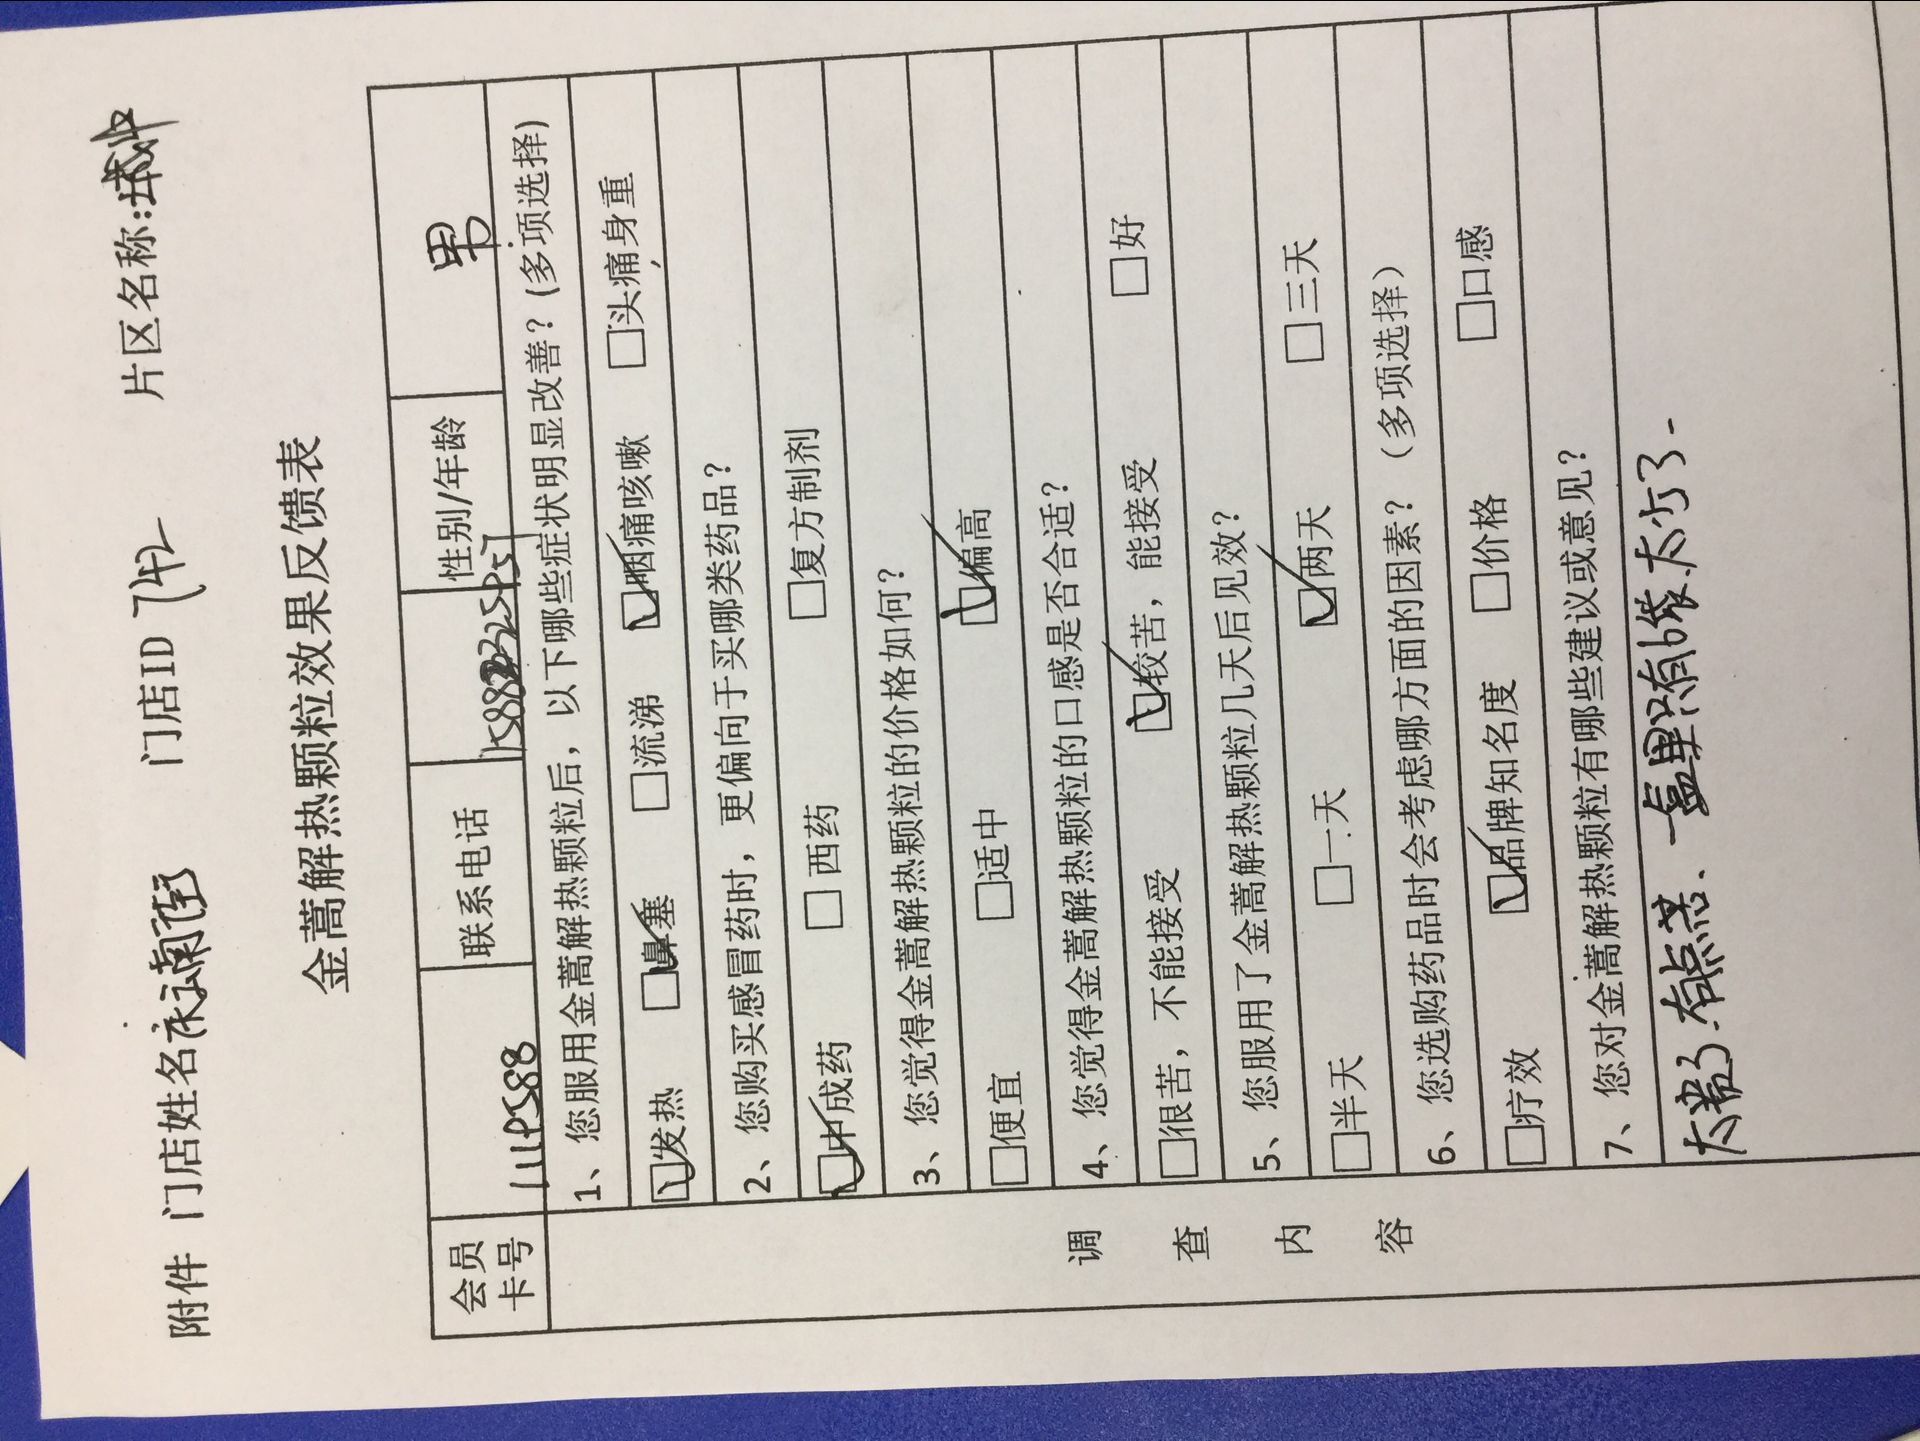 附件 门店姓名 门店ID 742 片区名称:城中
金蒿解热颗粒效果反馈表
会员卡号 联系电话 性别/年龄 男
1、您服用金蒿解热颗粒后，以下哪些症状明显改善？(多项选择)
☑发热 ☑鼻塞 □流涕 ☑咽痛咳嗽 □头痛身重
2、您购买感冒药时，更偏向于买哪类药品？
☑中成药 □西药 □复方制剂
3、您觉得金蒿解热颗粒的价格如何？
□便宜 □适中 ☑偏高
4、您觉得金蒿解热颗粒的口感是否合适？
□很苦，不能接受 ☑较苦，能接受 □好
5、您服用了金蒿解热颗粒几天后见效？
□半天 □一天 ☑两天 □三天
6、您选购药品时会考虑哪方面的因素？（多项选择）
□疗效 ☑品牌知名度 □价格 □口感
7、您对金蒿解热颗粒有哪些建议或意见？
太贵了.有点苦.一盒里只有6袋.太少了-
调查内容